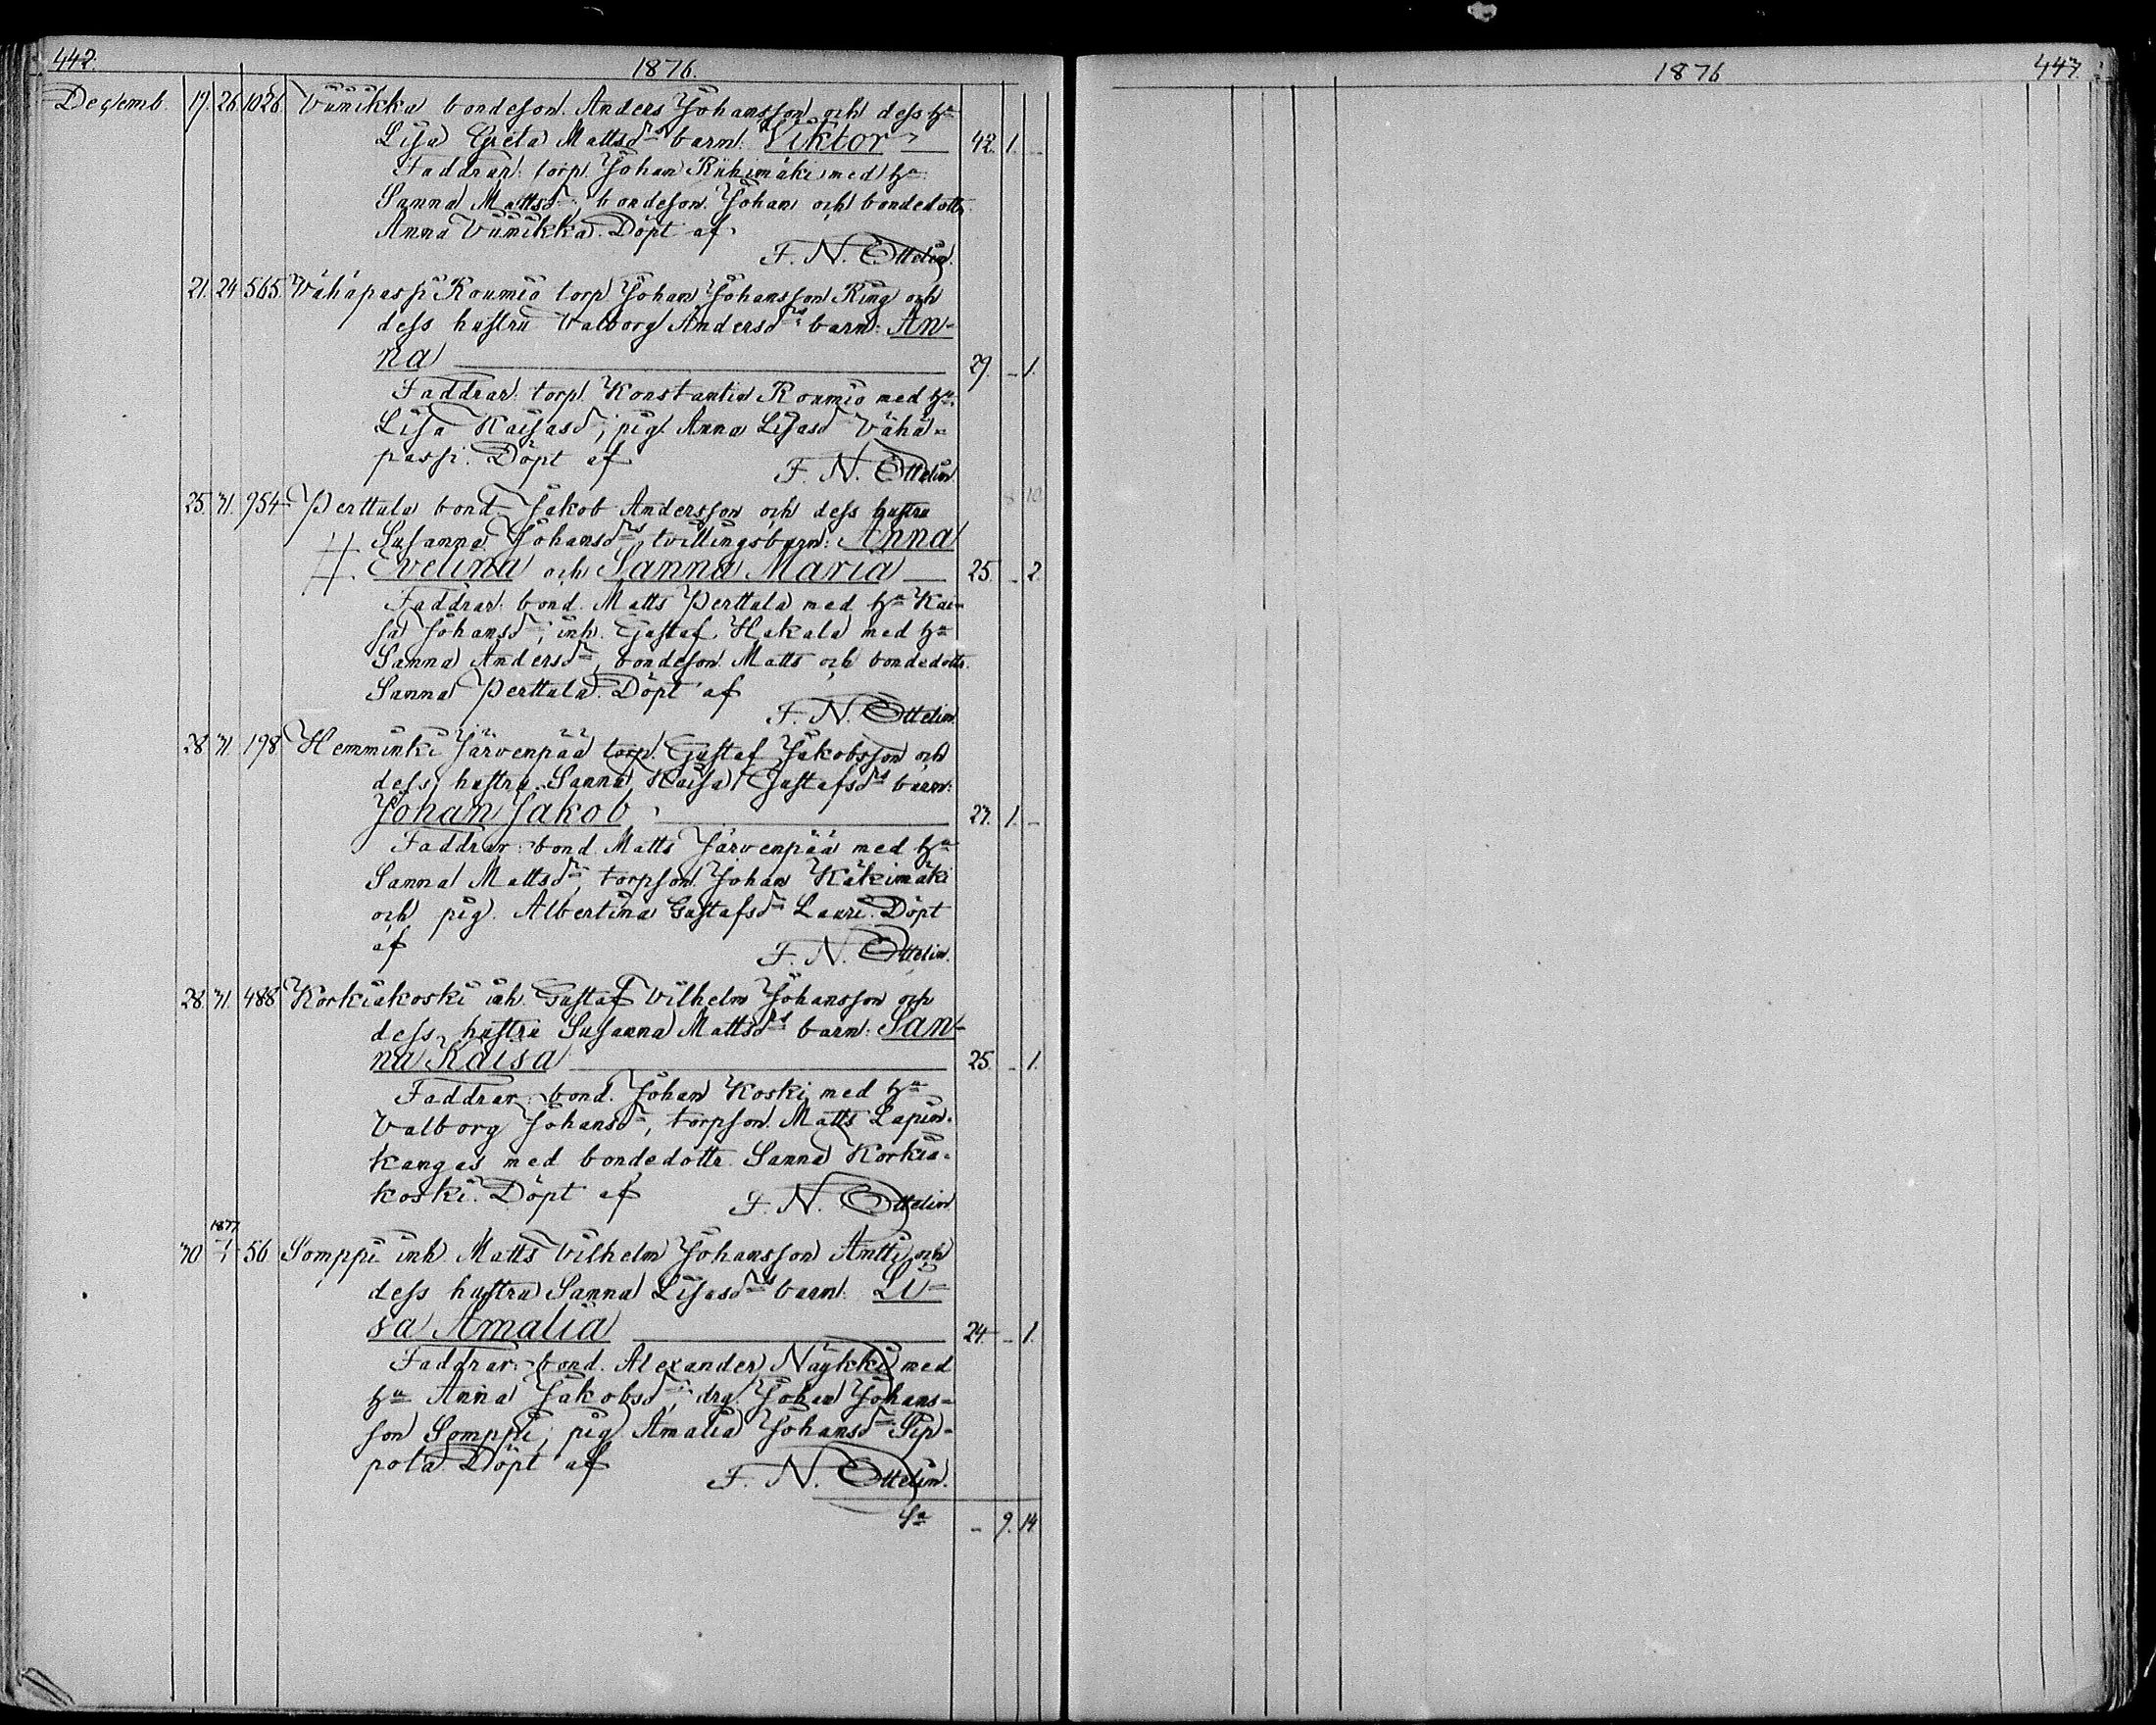 442. 1876.
Decemb. 19. 26. 1026. Viinikka bondeson. Anders Johansson och dess h:a
Lisa Greta Mattsd:rs barn: Viktor 42. 1. -
Faddrar: torp. Johan Riihimäki med h:a
Sanna Mattsd:r, bondeson. Johan och bondedottr.
Anna Viinikka. Döpt af
F. N. Ottelin.
21. 24. 565. Vähäpassi Roumio torp. Johan Johansson Ring och
dess hustru Valborg Andersd:rs barn: An-
na 29. - 1.
Faddrar: torp. Konstantin Roumio med h:a
Lisa Kaisasd:r; pig. Anna Lisasd:r Vähä-
passi. Döpt af F. N. Ottelin.
25. 31. 954 Perttula bond. Jakob Andersson och dess hustru
Susanna Johansd:rs tvillingsbarn: Anna
Evelina och Sanna Maria 25. - 2.
Faddrar: bond. Matts Perttala med h:a Kai-
sa Johansd:r; inh. Gustaf Hakala med h:a
Sanna Andersd:r, bondeson. Matts och bondedottr.
Sanna Perttula. Döpt af
F. N. Ottelin.
28. 31. 198. Hemminki Järvenpää torp. Gustaf Jakobsson och
dess hustru Sanna Kaisa Gustafsd:rs barn:
Johan Jakob 27. 1. -
Faddrar: bond. Matts Järvenpää med h:a
Sanna Mattsd:r, torpson. Johan Käkimäki
och pig. Albertina Gustafsd:r Lauri. Döpt
af F. N. Ottelin.
28. 31. 488 Korkiakoski inh. Gustaf Vilhelm Johansson och
dess hustru Susanna Mattsd:rs barn: San-
na Kaisa 25. - 1.
Faddrar: bond. Johan Koski med h:a
Valborg Johansd:r, torpson. Matts Lapin-
kangas med bondedottr. Sanna Korkia-
koski. Döpt af F. N. Ottelin.
1877
30 1/1 56. Somppi inh. Matts Vilhelm Johansson Antti och
dess hustru Sanna Lisasd:rs barn: Li-
sa Amalia 24. - 1.
Faddrar: bond. Alexander Näykki med
h:a Anna Jakobsd:r; drg. Johan Johans-
son Somppi; pig. Amalia Johansd:r Pip-
pola. Döpt af F. N. Ottelin.
S:a - 9. 14
1876 447.